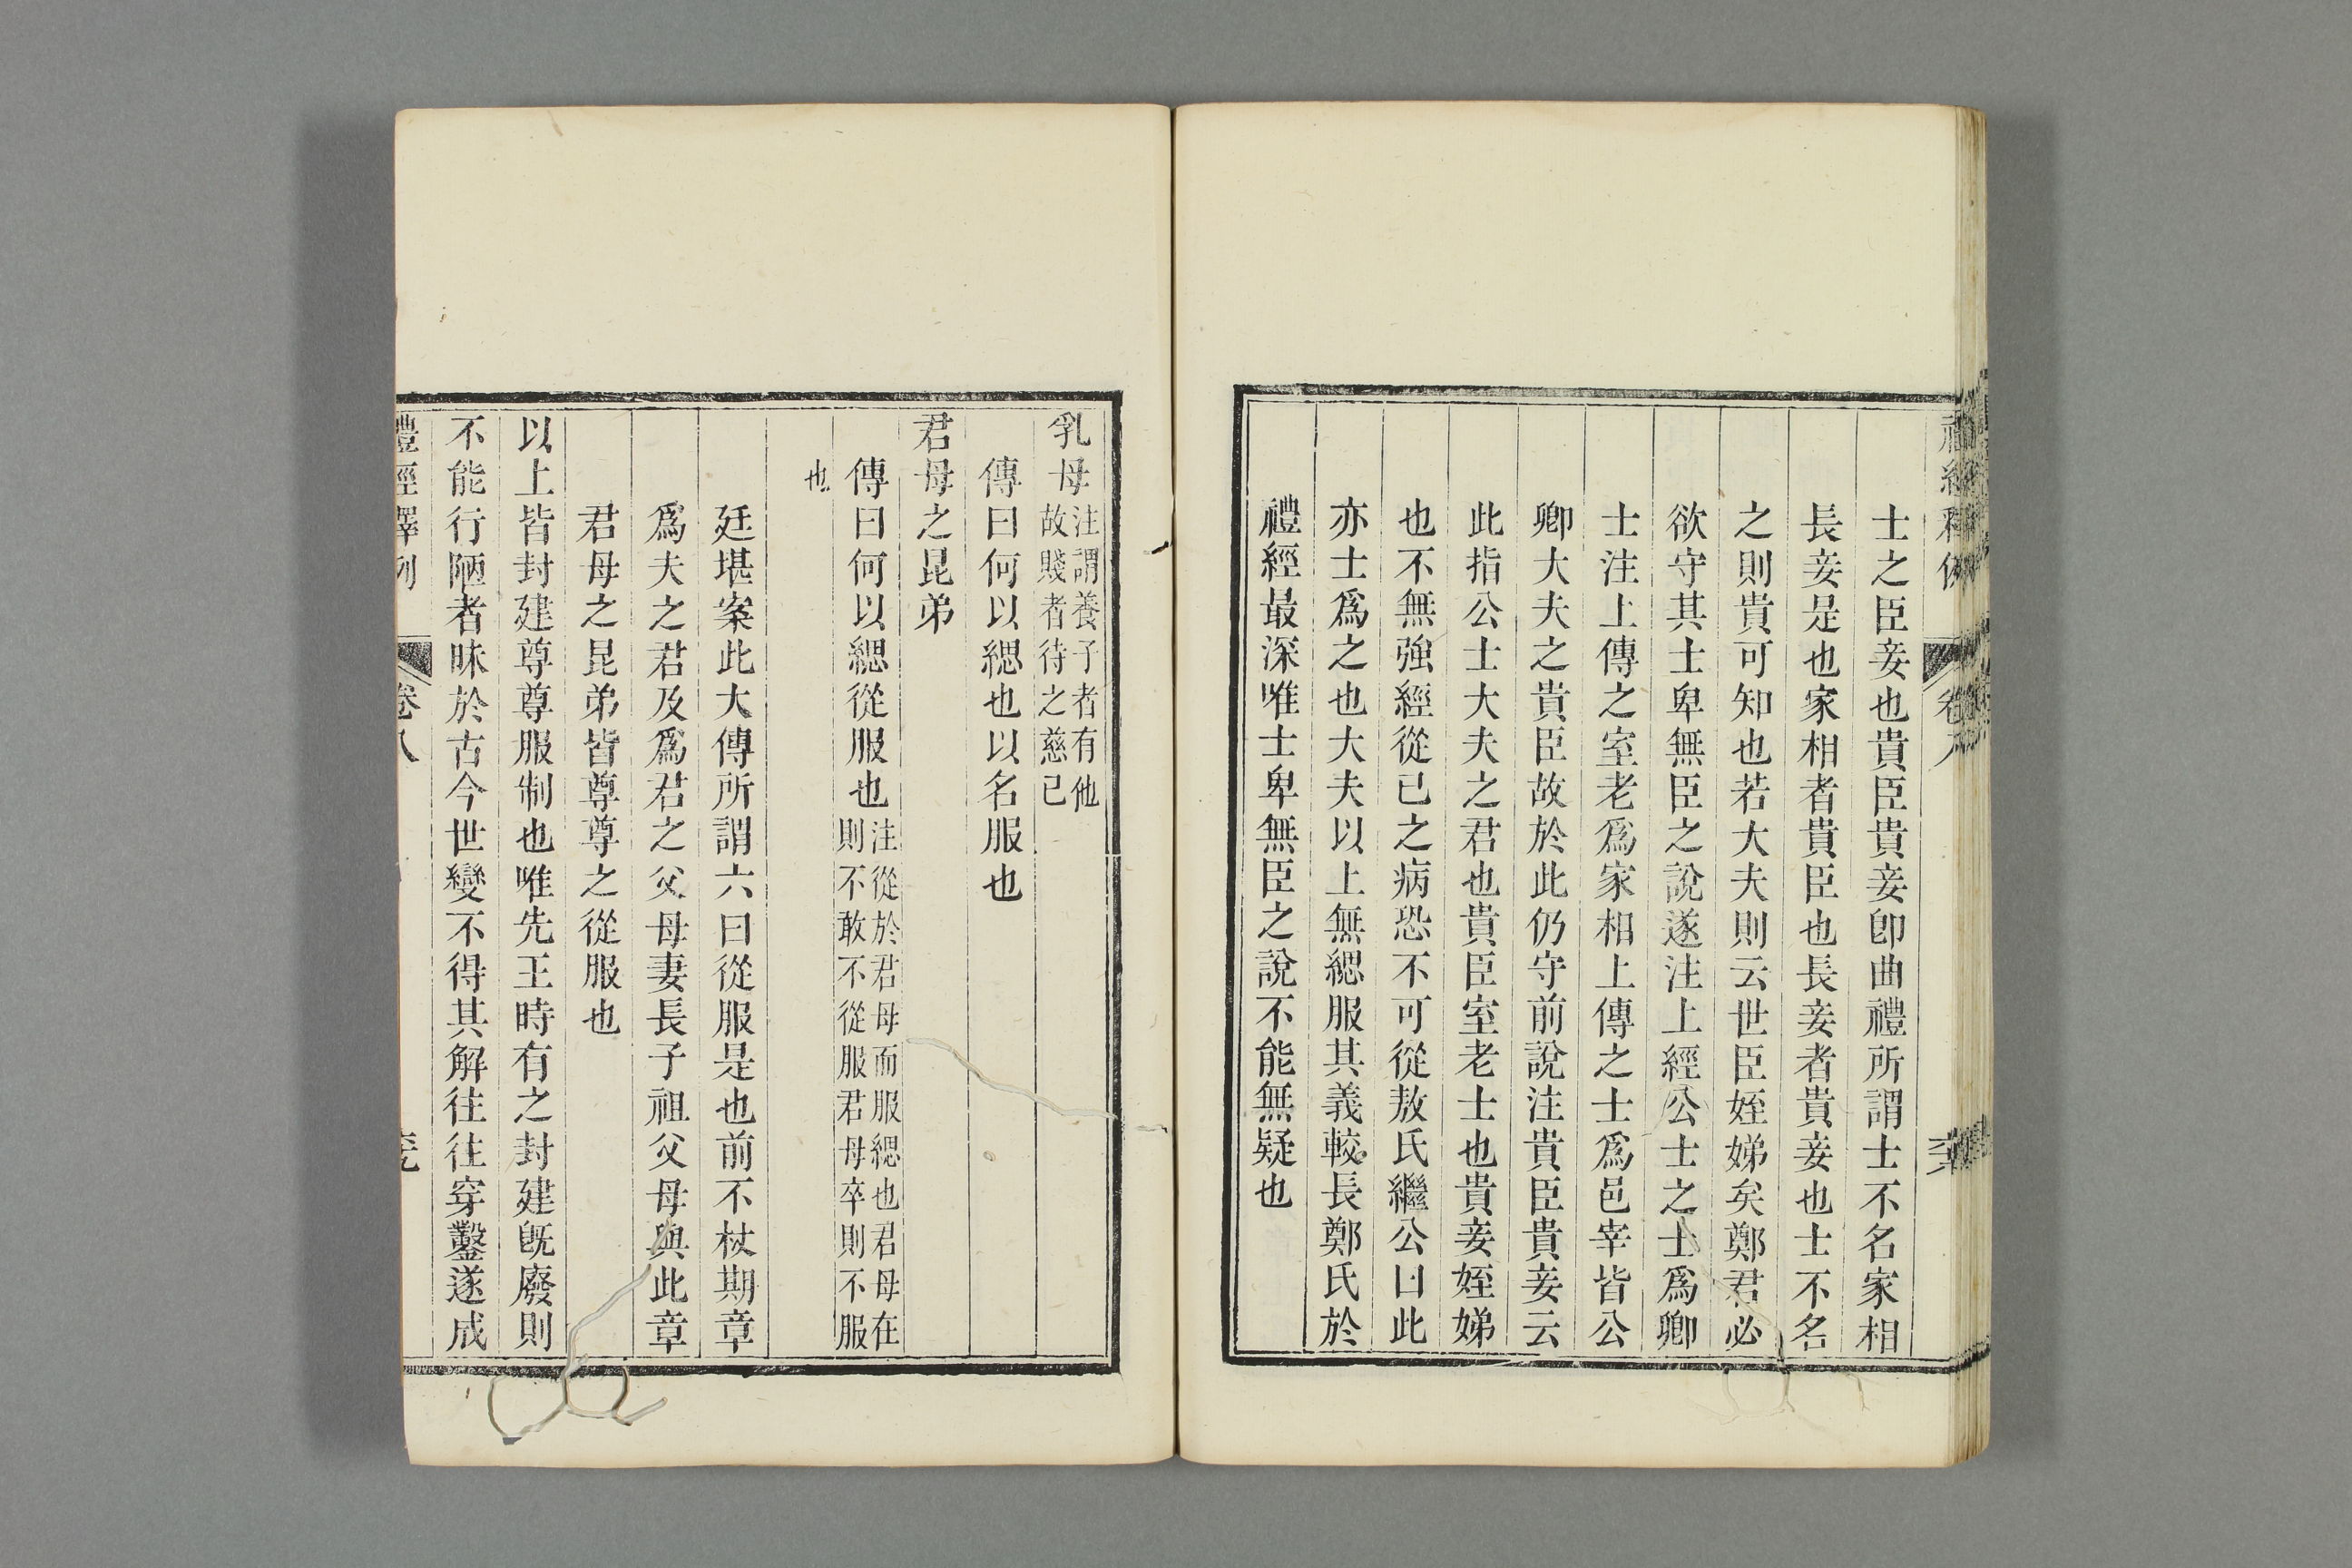 士之臣妾也貴臣貴妾卽曲禮所謂士不名家相
長妾是也家相者貴臣也長妾者貴妾也士不名
之則貴可知也若大夫則云世臣姪娣矣鄭君必
欲守其士卑無臣之說遂注上經公士之士爲卿
士注上傳之室老爲家相上傳之士爲邑宰皆公
卿大夫之貴臣故於此仍守前說注貴臣貴妾云
此指公士大夫之君也貴臣室老士也貴妾姪娣
也不無強經從已之病恐不可從敖氏繼公曰此
亦士爲之也大夫以上無緦服其義較長鄭氏於
禮經最深唯士卑無臣之說不能無疑也
乳母注謂養子者有他
故賤者待之慈已
傳曰何以緦也以名服也
君母之昆弟
傳曰何以緦從服也注從於君母而服緦也君母在
則不敢不從服君母卒則不服
也
廷堪案此大傳所謂六曰從服是也前不杖期章
爲夫之君及爲君之父母妻長子祖父母與此章
君母之昆弟皆尊尊之從服也
以上皆封建尊尊服制也唯先王時有之封建旣廢則
不能行陋者昧於古今世變不得其解往往穿鑿遂成
禮經釋例
卷八